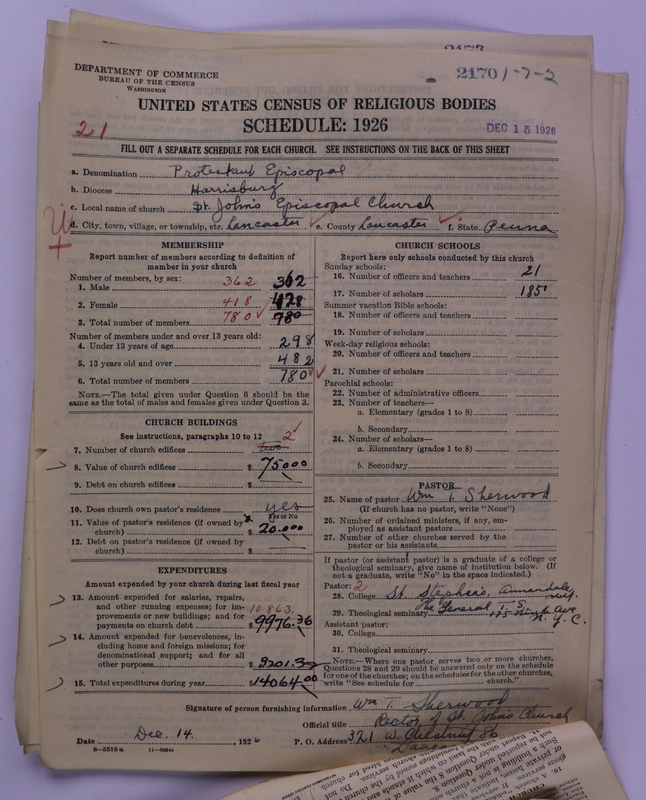 DEPARTMENT OF COMMERCE
BUREAU OF THE CENSUS
WASHINGTON
2170 1-7-2
UNITED STATES CENSUS OF RELIGIOUS BODIES
SCHEDULE: 1926
21
DEC 15 1926
FILL OUT A SEPARATE SCHEDULE FOR EACH CHURCH. SEE INSTRUCTIONS ON THE BACK OF THIS SHEET
a. Denomination Protestant Episcopal
b. Diocese Harrisburg
c. Local name of church St. John's Episcopal Church
d. City, town, village, or township, etc. Lancaster e. County Lancaster f. State Penna
MEMBERSHIP
Report number of members according to definition of
member in your church
Number of members, by sex:
1. Male 362 362
2. Female 418 418
3. Total number of members 780 780
Number of members under and over 13 years old:
4. Under 13 years of age 298
5. 13 years old and over 482
6. Total number of members 780
NOTE.—The total given under Question 6 should be the
same as the total of males and females given under Question 3.
CHURCH BUILDINGS
See instructions, paragraphs 10 to 12
7. Number of church edifices two 2
8. Value of church edifices $ 75000
9. Debt on church edifices $
10. Does church own pastor's residence yes
Yes or No
11. Value of pastor's residence (if owned by
church) $ 20.000
12. Debt on pastor's residence (if owned by
church) $
EXPENDITURES
Amount expended by your church during last fiscal year
13. Amount expended for salaries, repairs,
and other running expenses; for im-
provements or new buildings; and for
payments on church debt $ 10863. 9976.36
14. Amount expended for benevolences, in-
cluding home and foreign missions; for
denominational support; and for all
other purposes $ 3201.32
15. Total expenditures during year $ 14064.00
CHURCH SCHOOLS
Report here only schools conducted by this church
Sunday schools:
16. Number of officers and teachers 21
17. Number of scholars 185
Summer vacation Bible schools:
18. Number of officers and teachers
19. Number of scholars
Week-day religious schools:
20. Number of officers and teachers
21. Number of scholars
Parochial schools:
22. Number of administrative officers
23. Number of teachers—
a. Elementary (grades 1 to 8)
b. Secondary
24. Number of scholars—
a. Elementary (grades 1 to 8)
b. Secondary
PASTOR
25. Name of pastor Wm T. Sherwood
(If church has no pastor, write "None")
26. Number of ordained ministers, if any, em-
ployed as assistant pastors
27. Number of other churches served by the
pastor or his assistants
If pastor (or assistant pastor) is a graduate of a college or
theological seminary, give name of institution below. (If
not a graduate, write "No" in the space indicated.)
Pastor: 2
28. College St. Stephens, Annandale, N.Y.
29. Theological seminary The General T. S. 175 Ninth Ave N.Y.C.
Assistant pastor:
30. College
31. Theological seminary
NOTE.—Where one pastor serves two or more churches,
Questions 28 and 29 should be answered only on the schedule
for one of the churches; on the schedules for the other churches,
write "See schedule for church."
Signature of person furnishing information Wm T. Sherwood
Official title Rector of St. John's Church
Date Dec. 14, 1926 P. O. Address 321 W. Chestnut St.